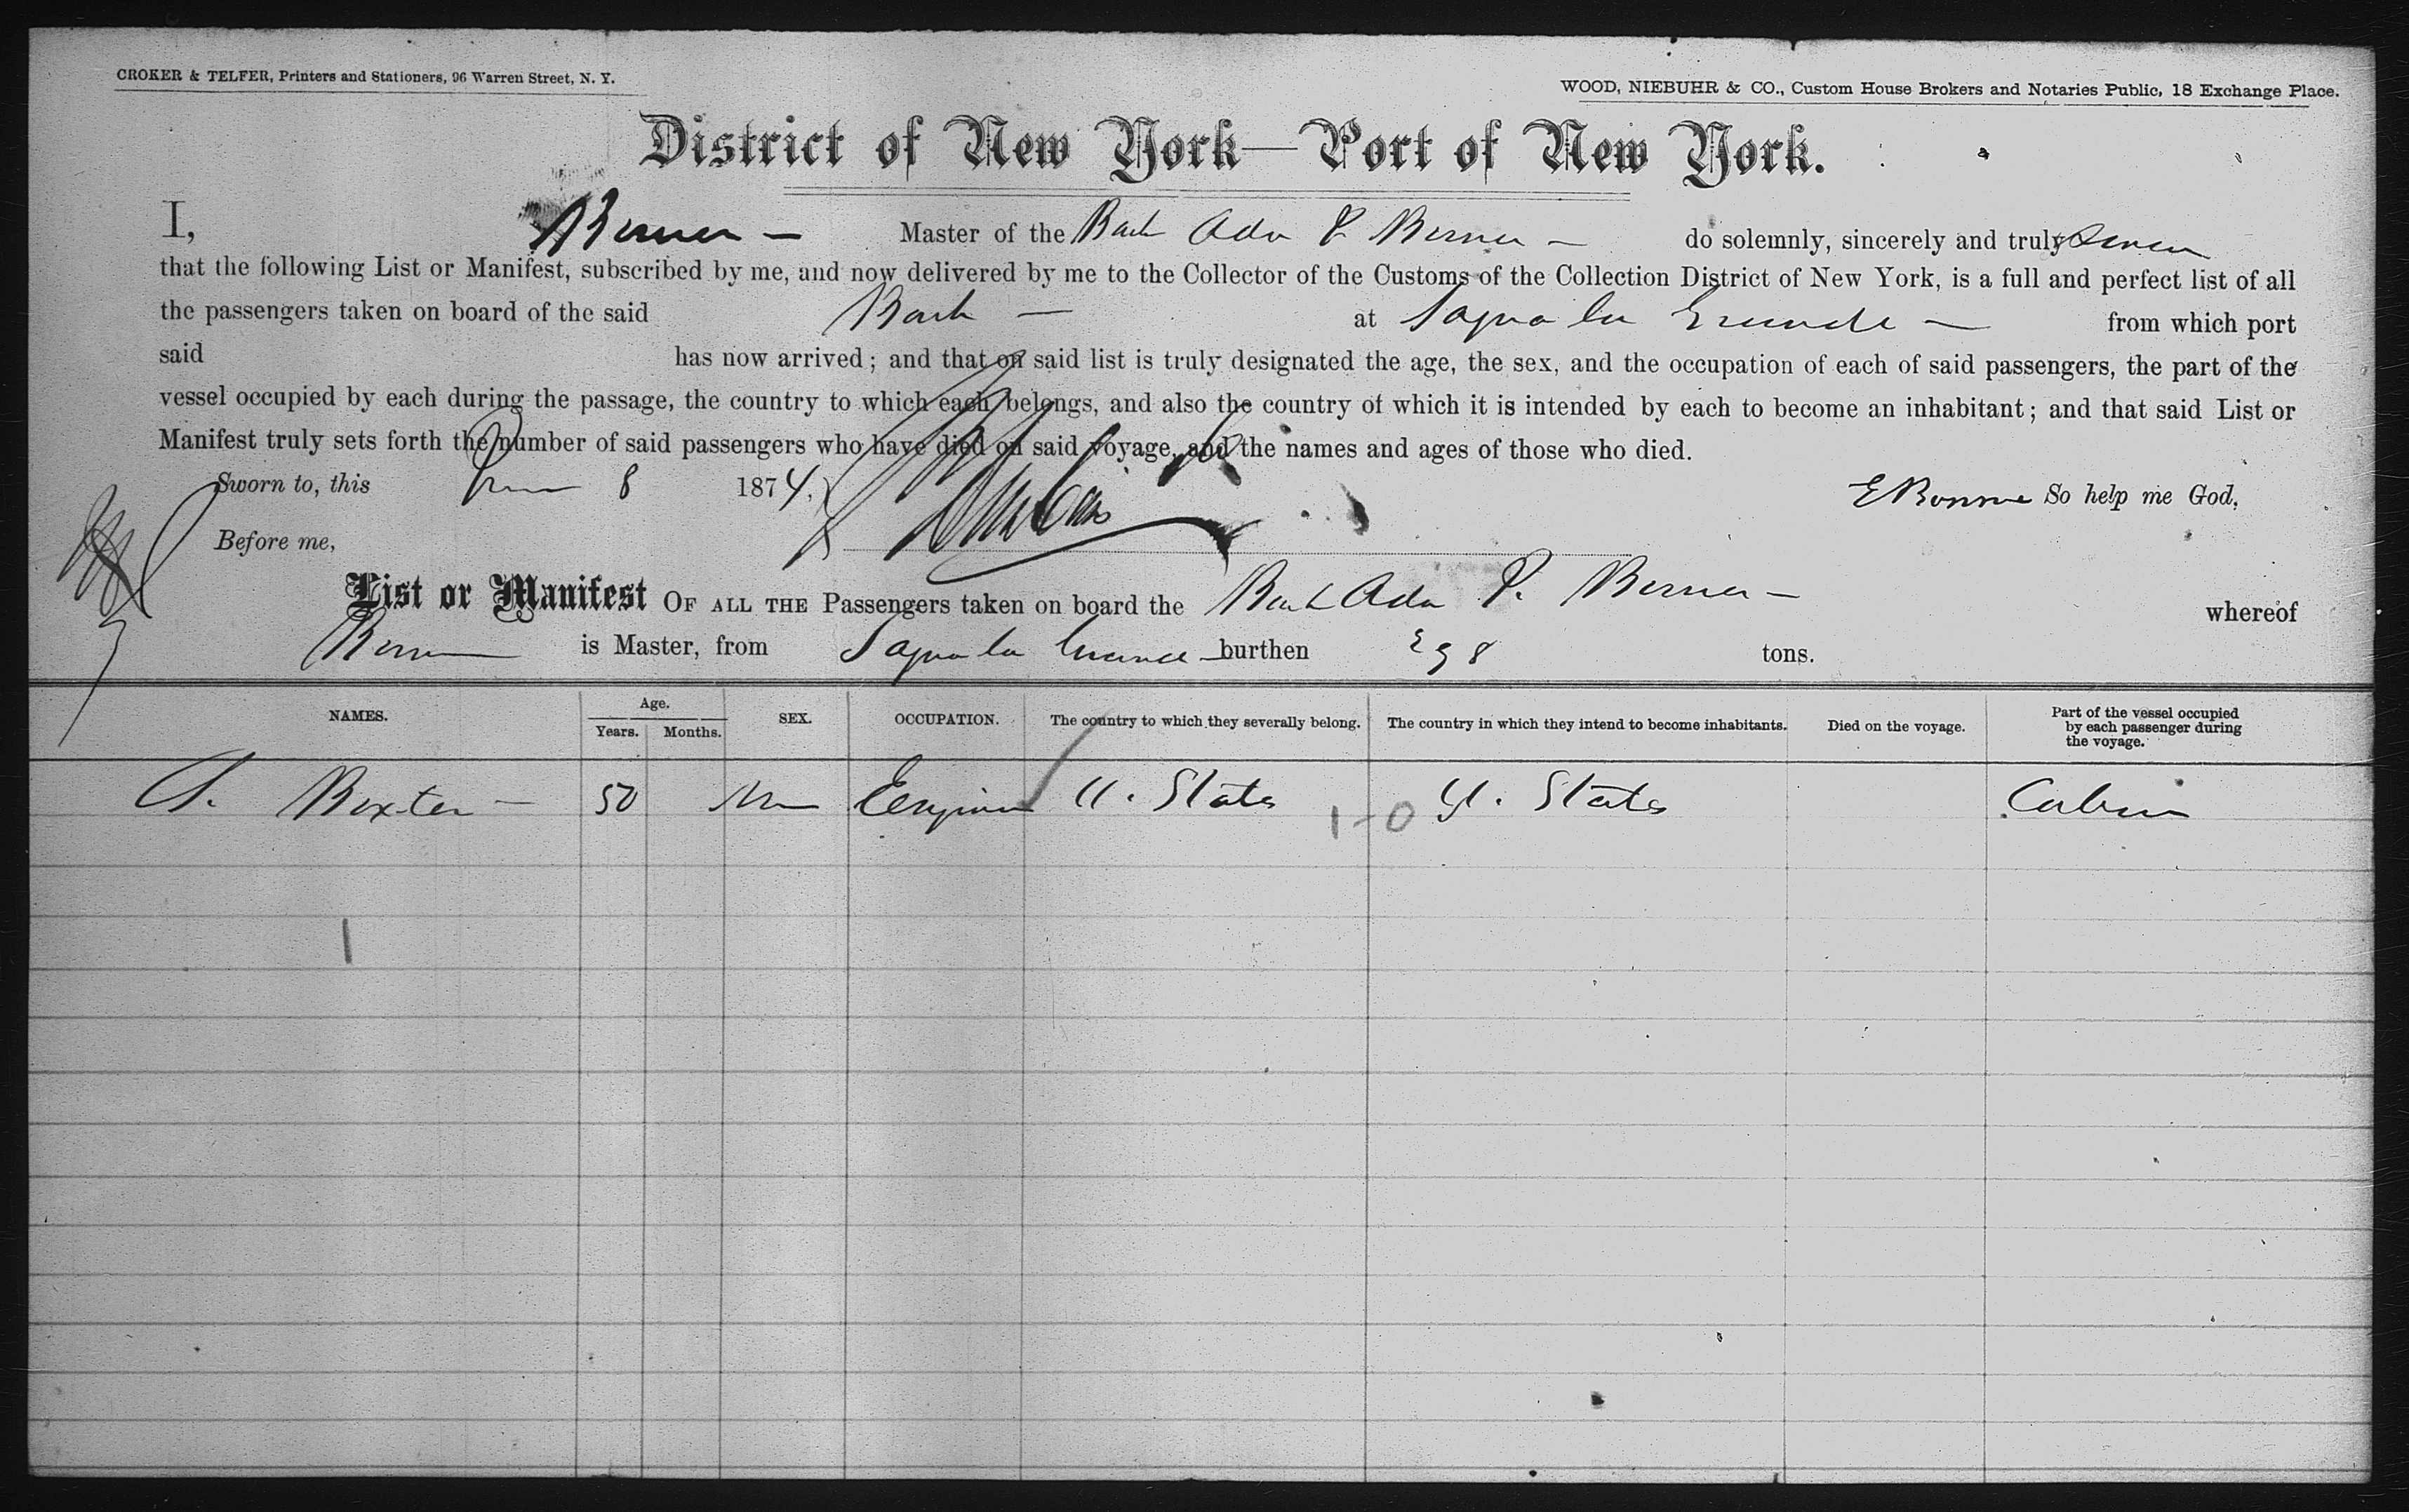 CROKER & TELFER, Printers and Stationers, 96 Warren Street, N. Y.
WOOD, NIEBUHR & CO., Custom House Brokers and Notaries Public, 18 Exchange Place.
District of New York—Port of New York.
I, Master of the Bark Ada P do solemnly, sincerely and truly
that the following List or Manifest, subscribed by me, and now delivered by me to the Collector of the Customs of the Collection District of New York, is a full and perfect list of all
the passengers taken on board of the said Bark — at Sagua la Grande — from which port
said has now arrived; and that on said list is truly designated the age, the sex, and the occupation of each of said passengers, the part of the
vessel occupied by each during the passage, the country to which each belongs, and also the country of which it is intended by each to become an inhabitant; and that said List or
Manifest truly sets forth the number of said passengers who have died on said voyage, and the names and ages of those who died.
Sworn to, this 8 1874,
So help me God,
Before me,
List or Manifest OF ALL THE Passengers taken on board the Bark Ada P. whereof
is Master, from Sagua la Grande — burthen tons.
NAMES. Age. Years. Months. SEX. OCCUPATION. The country to which they severally belong. The country in which they intend to become inhabitants. Died on the voyage. Part of the vessel occupied by each passenger during the voyage.
Baxter — 50 U. States 1-0 U. States Cabin
1